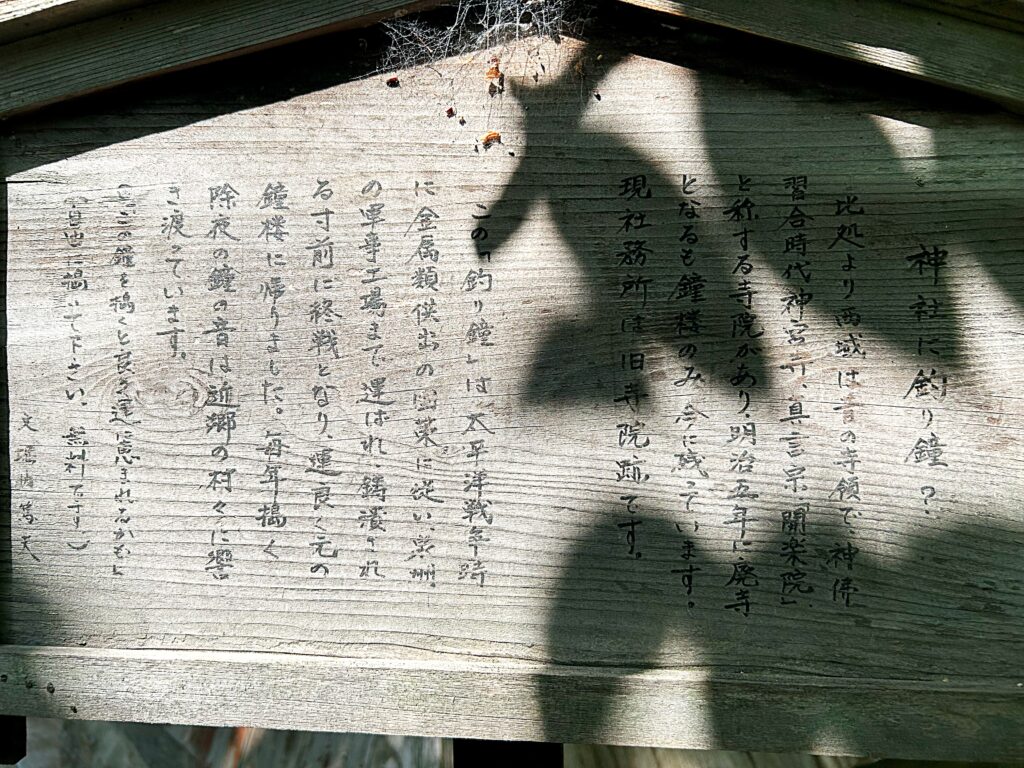 神社に釣り鐘?
此処より西域は昔の寺領で、神佛
習合時代神宮寺、真言宗「開楽院」
と称する寺院があり、明治五年に廃寺
となるも鐘楼のみ、今に残っています。
現社務所は旧寺院跡です。
この「釣り鐘」は、太平洋戦争時
に金属類供出の国策に従い、泉州
の軍事工場まで運ばれ、鋳潰され
る寸前に終戦となり、運良く元の
鐘楼に帰りました。毎年搗く
除夜の鐘の音は近郷の村々に響
き渡っています。
この鐘を搗くと良き運に恵まれるかも」
搗いて下さい。無料です